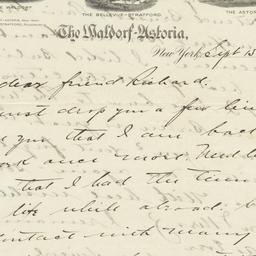 THE BELLEVUE-STRATFORD.
The Waldorf-Astoria,
New York, Sept 13
dear friend Richard.
must drop you a few line
you that I am back
work once more. Need
that I had the
life while abroad.
contact with many